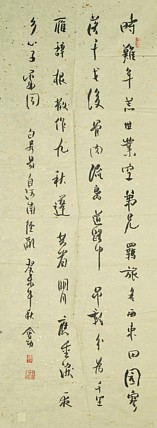 時難年荒世業空弟兄羈旅各西東田園寥
落干戈後骨肉流離道路中吊影分為千里
雁辭根散作九秋蓬共看明月應垂淚一夜
鄉心五處同 白居易自河南經亂 癸未年秋